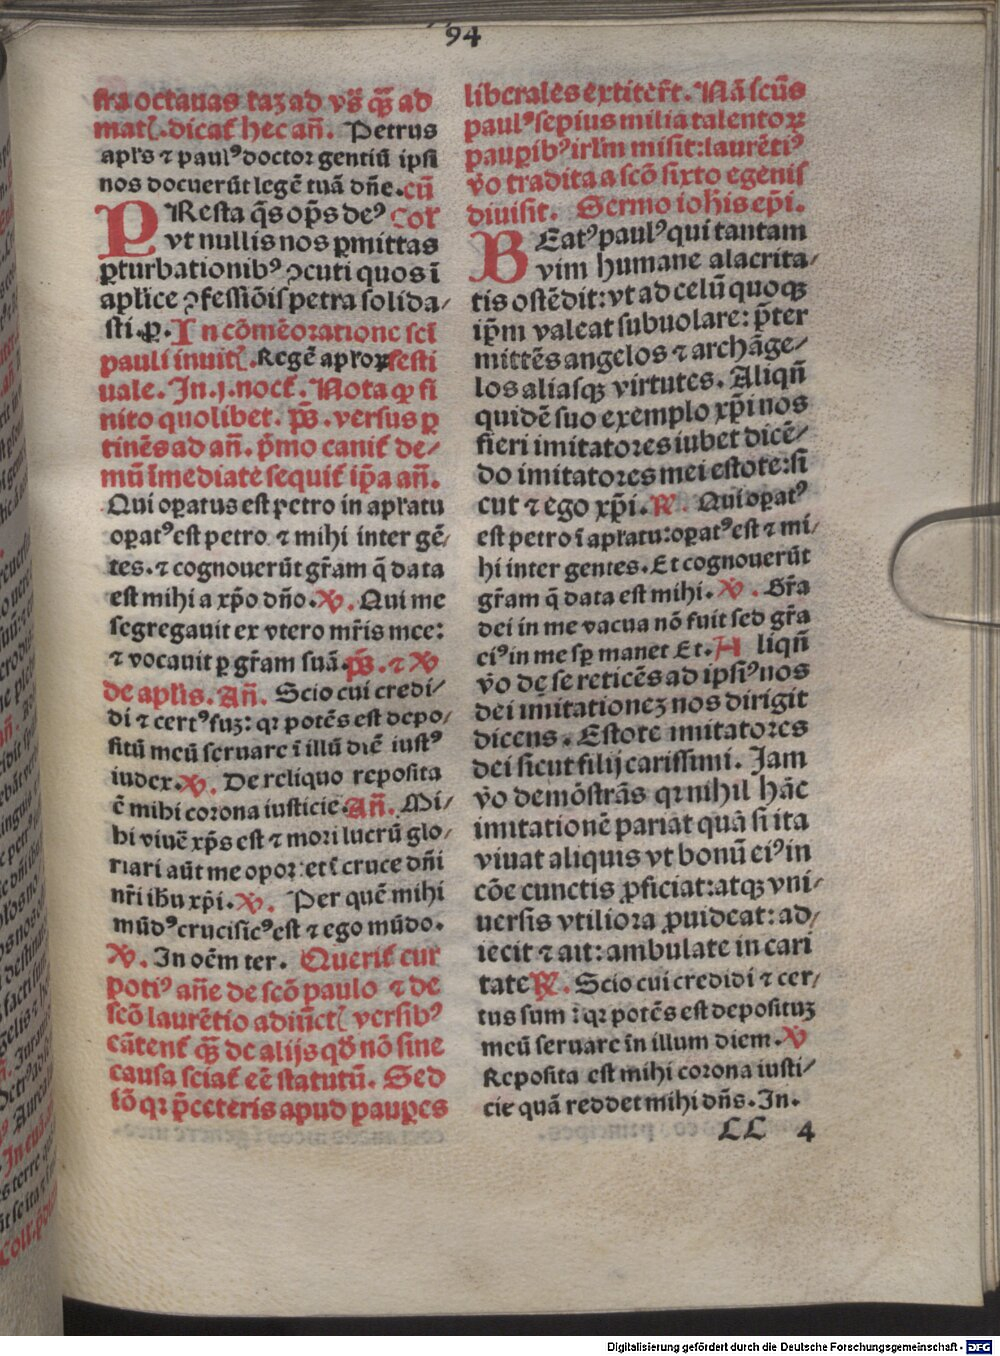 94
fra octauas taʒ ad vs̄ qȝ̄ ad
matꝭ. dicat̄ hec an̄. Petrus
apl̄s ⁊ paulꝰ doctor gentiū ipsi
nos docuerūt legē tuā dn̄e. cū
PResta q̄s op̄s deꝰ Col
vt nullis nos ꝑmittas
ꝑturbationibꝰ ꝯcuti quos ī
apl̄ice ꝯfessiōis petra solida/
sti. ꝑ. In cōmēoratione sci
pauli inuitꝭ. Regē apl̄oꝝ festi
uale. In. j. noct̄. Nota ꝙ fi
nito quolibet. ps̄. versus ꝑ
tinēs ad an̄. p̄mo canit̄ de/
mū īmediate sequit̄ ip̄a an̄.
Qui oꝑatus est petro in apl̄atu
oꝑatꝰ est petro ⁊ mihi inter gē/
tes. ⁊ cognouerūt gr̄am q̄ data
est mihi a xp̄o dn̄o. ꝟ. Qui me
segregauit ex vtero mr̄is mee:
⁊ vocauit ꝑ gr̄am suā. ps̄. ⁊ ꝟ
de apl̄is. An̄. Scio cui credi/
di ⁊ certꝰ suʒ: qꝛ potēs est depo/
sitū meū seruare ī illū diē iustꝰ
iudex. ꝟ. De reliquo reposita
ē mihi corona iusticie. An̄. Mi/
hi viuē xp̄s est ⁊ mori lucrū glo/
riari aūt me oportet ī cruce dn̄i
nr̄i ih̄u xp̄i. ꝟ. Per quē mihi
mūdꝰ crucifixꝰ est ⁊ ego mūdo.
ꝟ. In oēm ter. Querit̄ cur
potiꝰ an̄e de scō paulo ⁊ de
scō laurētio adiūctꝭ versibꝰ
cātent̄ qȝ̄ de alijs qd̄ nō sine
causa sciat̄ eē statutū. Sed
iō qꝛ p̄ceteris apud pauꝑes
liberales extiter̄t. Nā scūs
paulꝰ sepius milia talentoꝝ
pauꝑibꝰ irl̄m misit: laurētiꝰ
v̄o tradita a scō sixto egenis
diuisit. Sermo ioh̄is ep̄i.
BEatꝰ paulꝰ qui tantam
vim humane alacrita/
tis ostēdit: vt ad celū quoqȝ
ip̄m valeat subuolare: p̄ter
mittēs angelos ⁊ archāge/
los aliasqȝ virtutes. Aliqn̄
quidē suo exemplo xp̄i nos
fieri imitatores iubet dicē/
do imitatores mei estote: si
cut ⁊ ego xp̄i. ꝶ. Qui oꝑatꝰ
est petro ī apl̄atu: oꝑatꝰ est ⁊ mi/
hi inter gentes. Et cognouerūt
gr̄am q̄ data est mihi. ꝟ. Gr̄a
dei in me vacua nō fuit sed gr̄a
eiꝰ in me sꝑ manet Et. A liqn̄
v̄o de se reticēs ad ipsiꝰ nos
dei imitationeʒ nos dirigit
dicens. Estote imitatores
dei sicut filij carissimi. Jam
v̄o demōstrās qꝛ nihil hāc
imitationē pariat quā si ita
viuat aliquis vt bonū eiꝰ in
cōe cunctis ꝓficiat: atqȝ vni/
uersis vtiliora ꝓuideat: ad/
iecit ⁊ ait: ambulate in cari
tate ꝶ. Scio cui credidi ⁊ cer/
tus sum : qꝛ potēs est depositūʒ
meū seruare in illum diem. ꝟ
Reposita est mihi corona iusti/
cie quā reddet mihi dn̄s. In.
LL 4
Digitalisierung gefördert durch die Deutsche Forschungsgemeinschaft - DFG